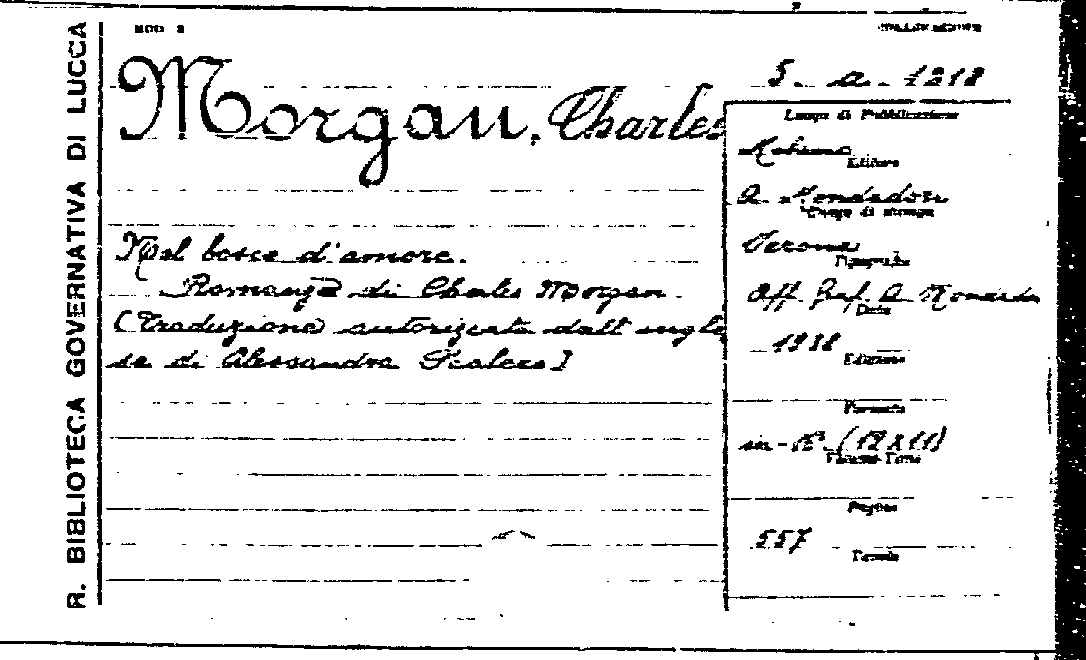 R. BIBLIOTECA GOVERNATIVA DI LUCCA
MOD 2
COLLOCAZIONE
5. a. 1218
Morgan, Charles
Nel bosco d'amore.
Romanzo di Charles Morgan.
(Traduzione autorizzata dall'ingle
se di Alessandra Scalero]
Luogo di Pubblicazione
Milano
Editore
A. Mondadori
Luogo di stampa
Verona
Tipografia
Off. Graf. A. Mondado
Data
1938
Edizione
Formato
in-12º (19x11)
Volume-Tomo
Pagine
557
Tavole